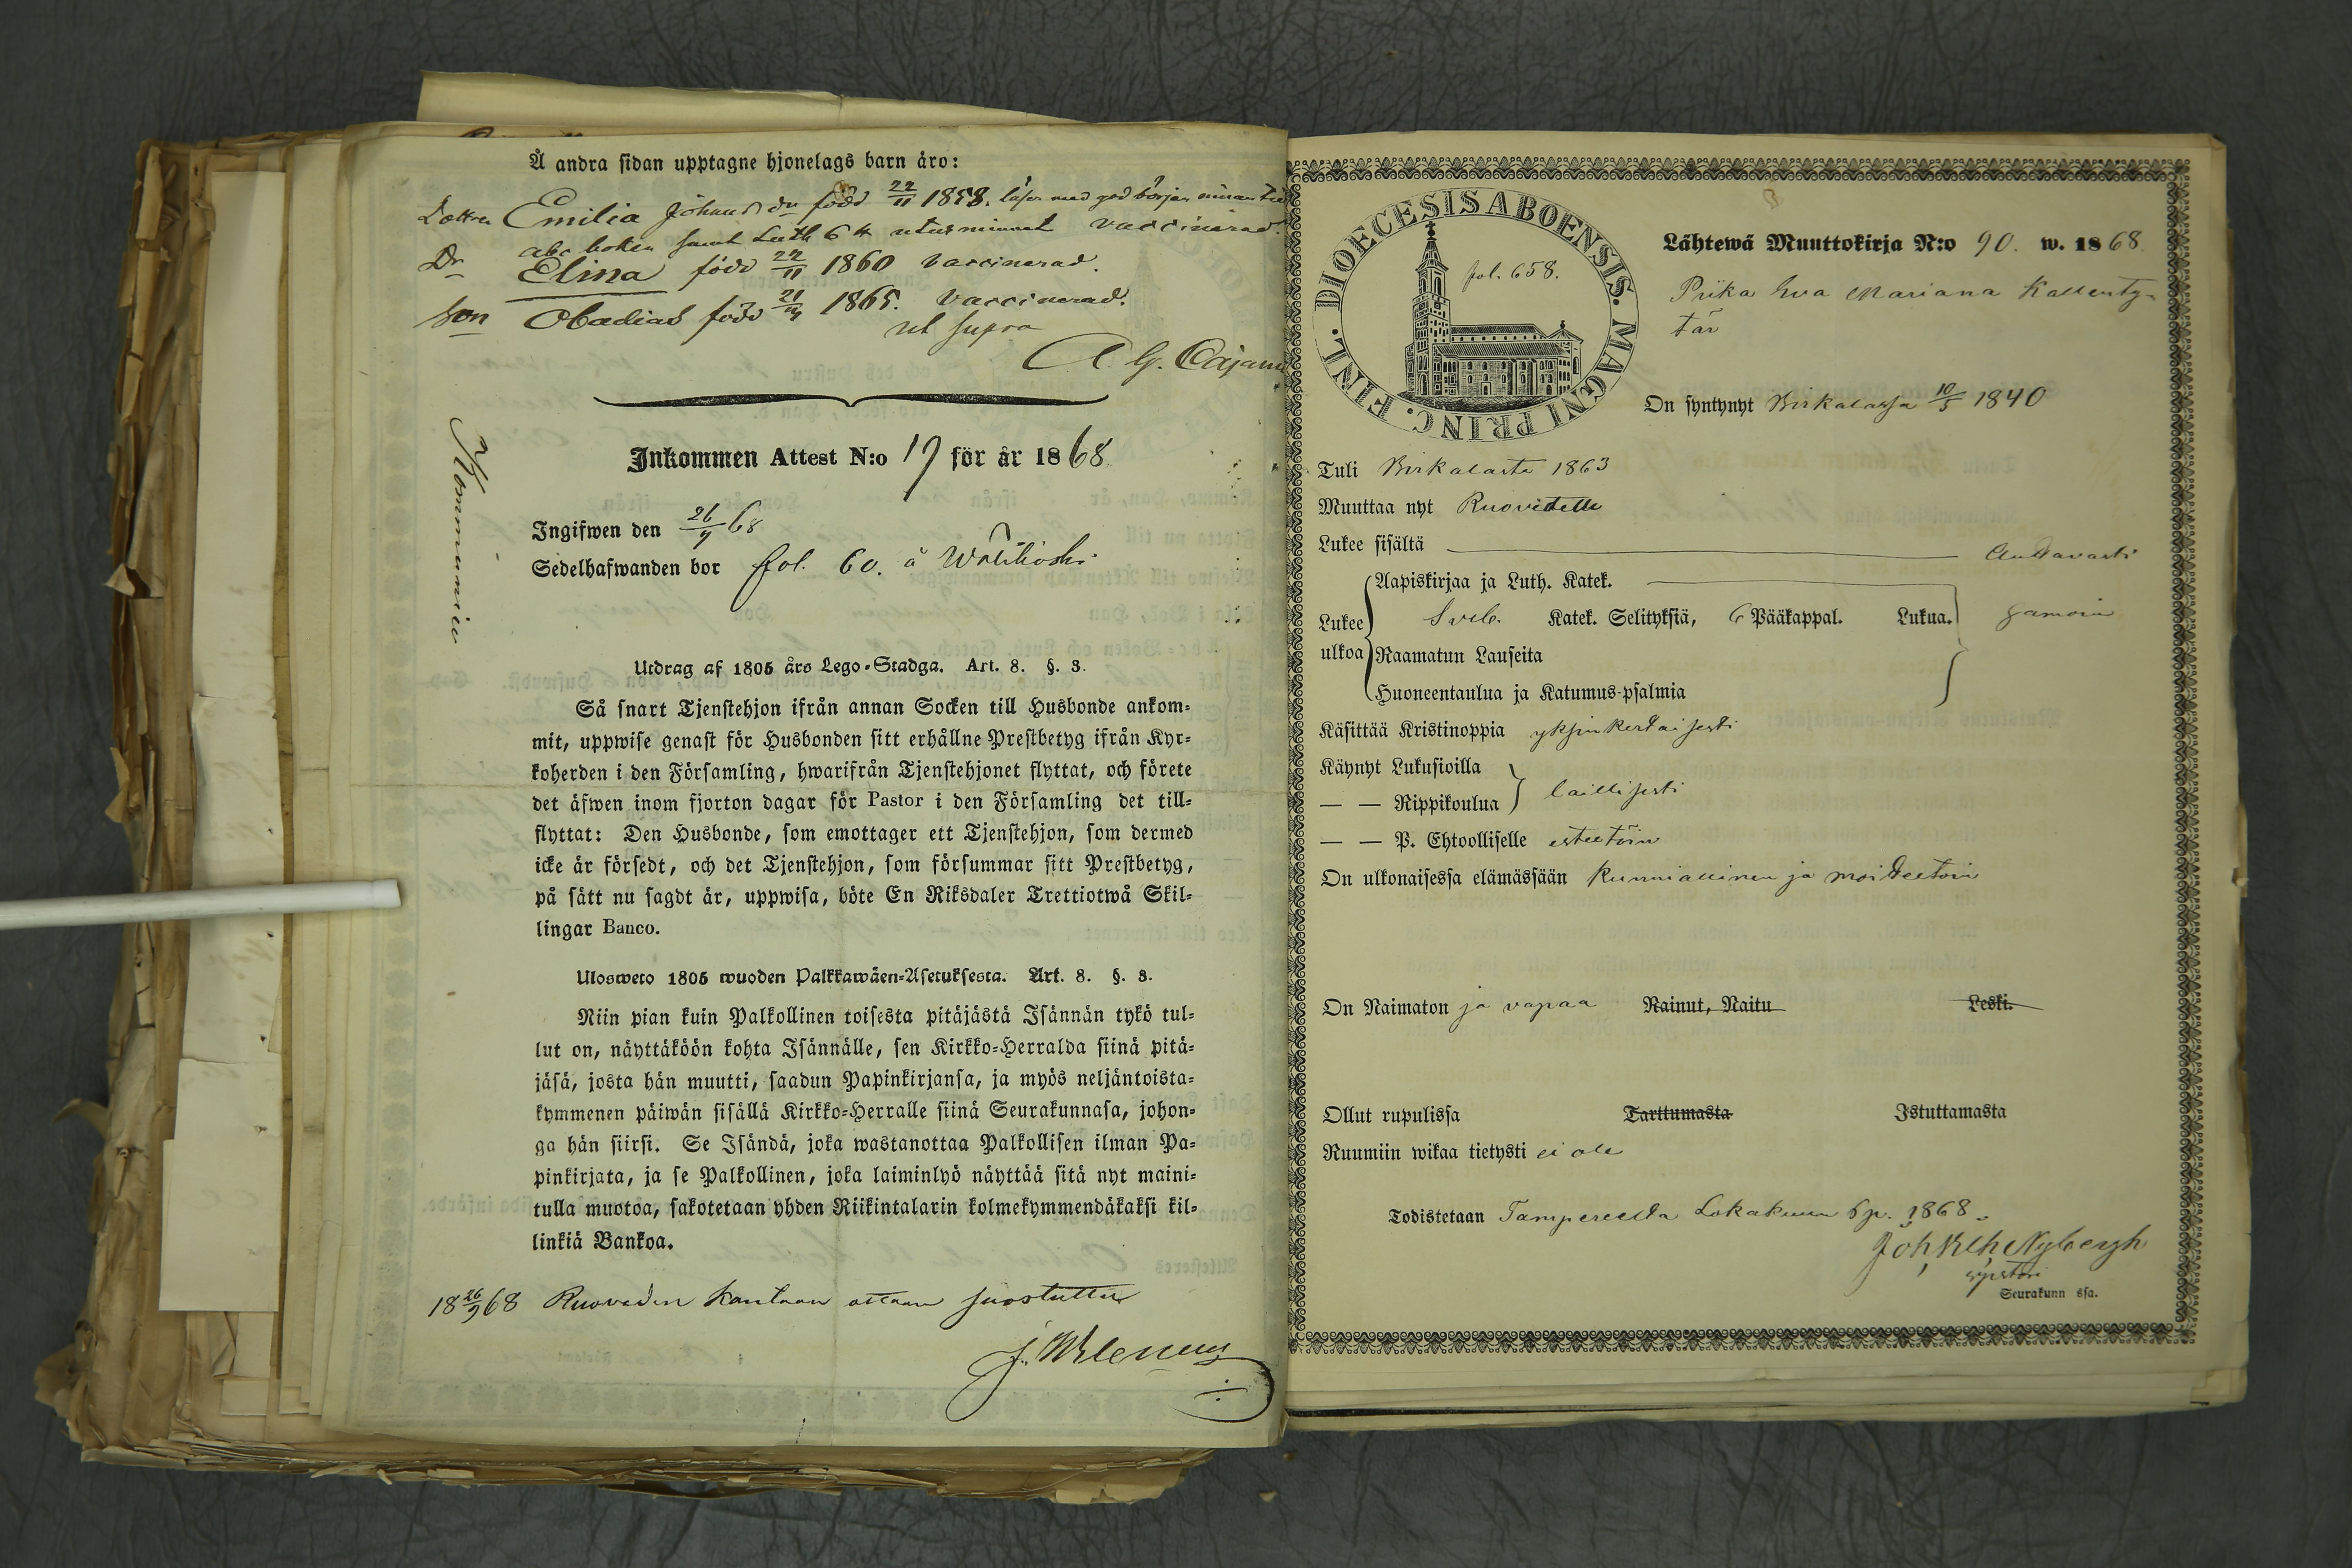 Å andra sidan upptagne hjonelags barn äro:
Dottren Emilia Johansdr född 22/11 1858. läser med god början innan till
abc boken samt Luth 6 st utur minnet vaccinerad.
Dr Elina född 22/11 1860 vaccinerad.
Son Obadias född 21/4 1865. vaccinerad.
ut supra
A. G. Cajanus
Inkommen Attest N:o 17 för år 1868
Ingifwen den 26/9 68
Sedelhafwanden bor fol. 60. å
Utdrag af 1805 års Lego-Stadga. Art. 8. §. 3.
Så snart Tjenstehjon ifrån annan Socken till Husbonde ankom-
mit, uppwise genast för Husbonden sitt erhållne Prestbetyg ifrån Kyr-
koherden i den Församling, hwarifrån Tjenstehjonet flyttat, och förete
det äfwen inom fjorton dagar för Pastor i den Församling det till-
flyttat: Den Husbonde, som emottager ett Tjenstehjon, som dermed
icke är försedt, och det Tjenstehjon, som försummar sitt Prestbetyg,
på sätt nu sagdt är, uppwisa, böte En Riksdaler Trettiotwå Skil-
lingar Banco.
Ulosweto 1805 wuoden Palkkawäen-Asetuksesta. Art. 8. §. 3.
Niin pian kuin Palkollinen toisesta pitäjästä Isännän tykö tul-
lut on, näyttäköön kohta Isännälle, sen Kirkko-Herralda siinä pitä-
jäsä, josta hän muutti, saadun Papinkirjansa, ja myös neljäntoista-
kymmenen päiwän sisällä Kirkko-Herralle siinä Seurakunnasa, johon-
ga hän siirsi. Se Isändä, joka wastanottaa Palkollisen ilman Pa-
pinkirjata, ja se Palkollinen, joka laiminlyö näyttää sitä nyt maini-
tulla muotoa, sakotetaan yhden Riikintalarin kolmekymmendäkaksi kil-
linkiä Bankoa.
18 26/9 68 Ruoveden kantaan ottaan suostuttu
DIOECESIS ABOENSIS. MAGNI PRINC. FINL.
fol. 658.
Lähtewä Muuttokirja N:o 90. w. 1868
Piika Eva Mariana Kallenty-
tär
On syntynyt Birkalassa 10/5 1840
Tuli Birkalasta 1863
Muuttaa nyt Ruovedelle
Lukee sisältä auttavasti
Aapiskirjaa ja Luth. Katek.
Lukee Sveb. Katek. Selityksiä, 6 Pääkappal. Lukua. samoin
ulkoa Raamatun Lauseita
Huoneentaulua ja Katumus-psalmia
Käsittää Kristinoppia yksinkertaisesti
Käynyt Lukusioilla
— — Rippikoulua laillisesti
— — P. Ehtoolliselle esteetöin
On ulkonaisessa elämässään kunniallinen ja moitteetoin
On Naimaton ja vapaa Nainut, Naitu Leski.
Ollut rupulissa Tarttumasta Istuttamasta
Ruumiin wikaa tietysti ei ole
Todistetaan Tampereella Lokakuun 6 p. 1868.
Nybergh
Seurakunn ssa.